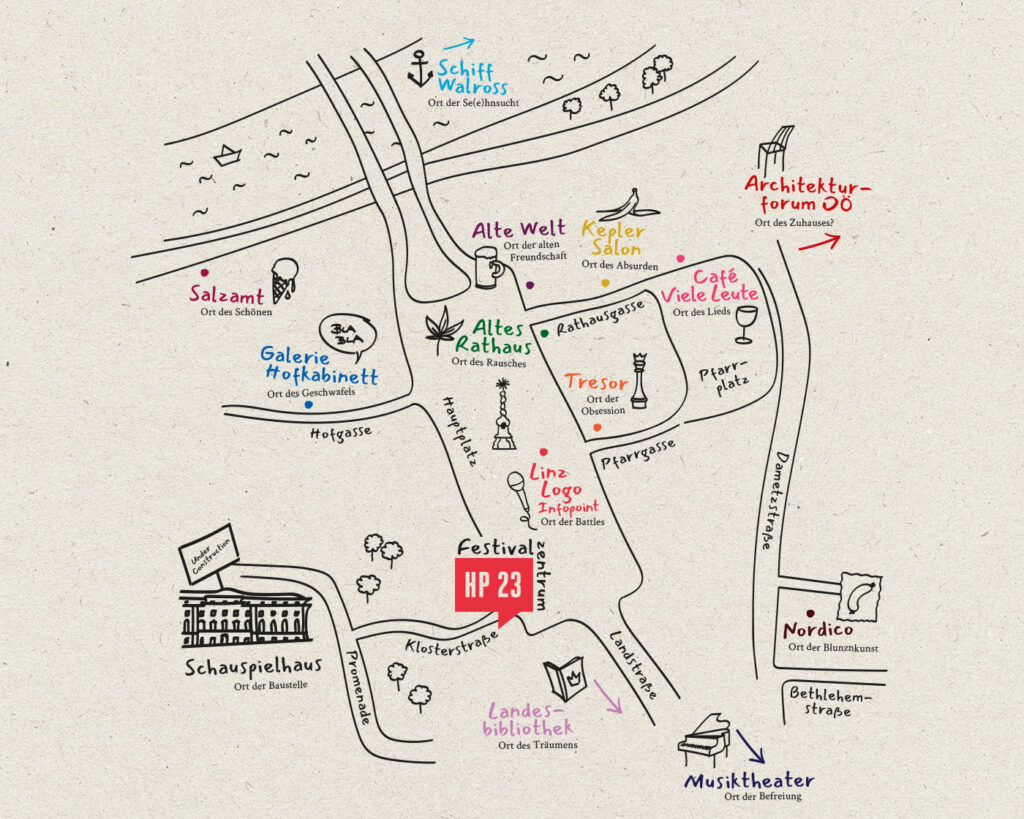 Schiff
Walross
Ort der Se(e)hnsucht
Architektur-
forum OÖ
Ort des Zuhauses?
Alte Welt
Ort der alten
Freundschaft
Kepler
Salon
Ort des Absurden
Café
Viele Leute
Ort des Lieds
Salzamt
Ort des Schönen
BLA
BLA
Galerie
Hofkabinett
Ort des Geschwafels
Altes
Rathaus
Ort des Rausches
Rathausgasse
Tresor
Ort der
Obsession
Pfarr-
platz
Hofgasse
Hauptplatz
Pfarrgasse
Linz
Logo
Infopoint
Ort der Battles
Dametzstraße
Under
Construction
Festival
zentrum
HP 23
Schauspielhaus
Ort der Baustelle
Klosterstraße
Promenade
Landstraße
Nordico
Ort der Blunznkunst
Bethlehem-
straße
Landes-
bibliothek
Ort des Träumens
Musiktheater
Ort der Befreiung